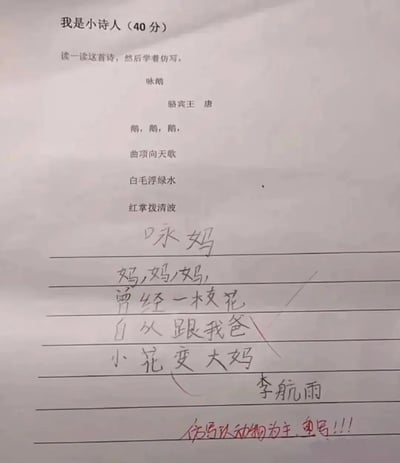 我是小诗人（40 分）
读一读这首诗，然后学着仿写。
咏鹅
骆宾王 唐
鹅，鹅，鹅，
曲项向天歌
白毛浮绿水
红掌拨清波
咏妈
妈,妈,妈,
曾经一枝花
自从跟我爸
小花变大妈
李航雨
仿写以动物为主,重写!!!